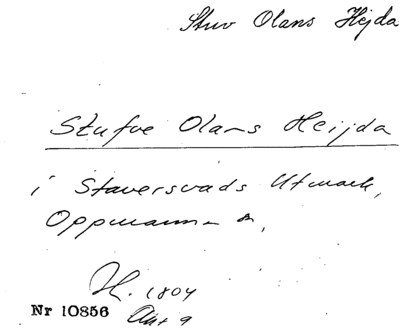 Stuv Olans Hejda
Stufve Olans Heijda
i Staversvads Utmark,
Oppmanna sn,
H. 1804
Akt 9
Nr 10856